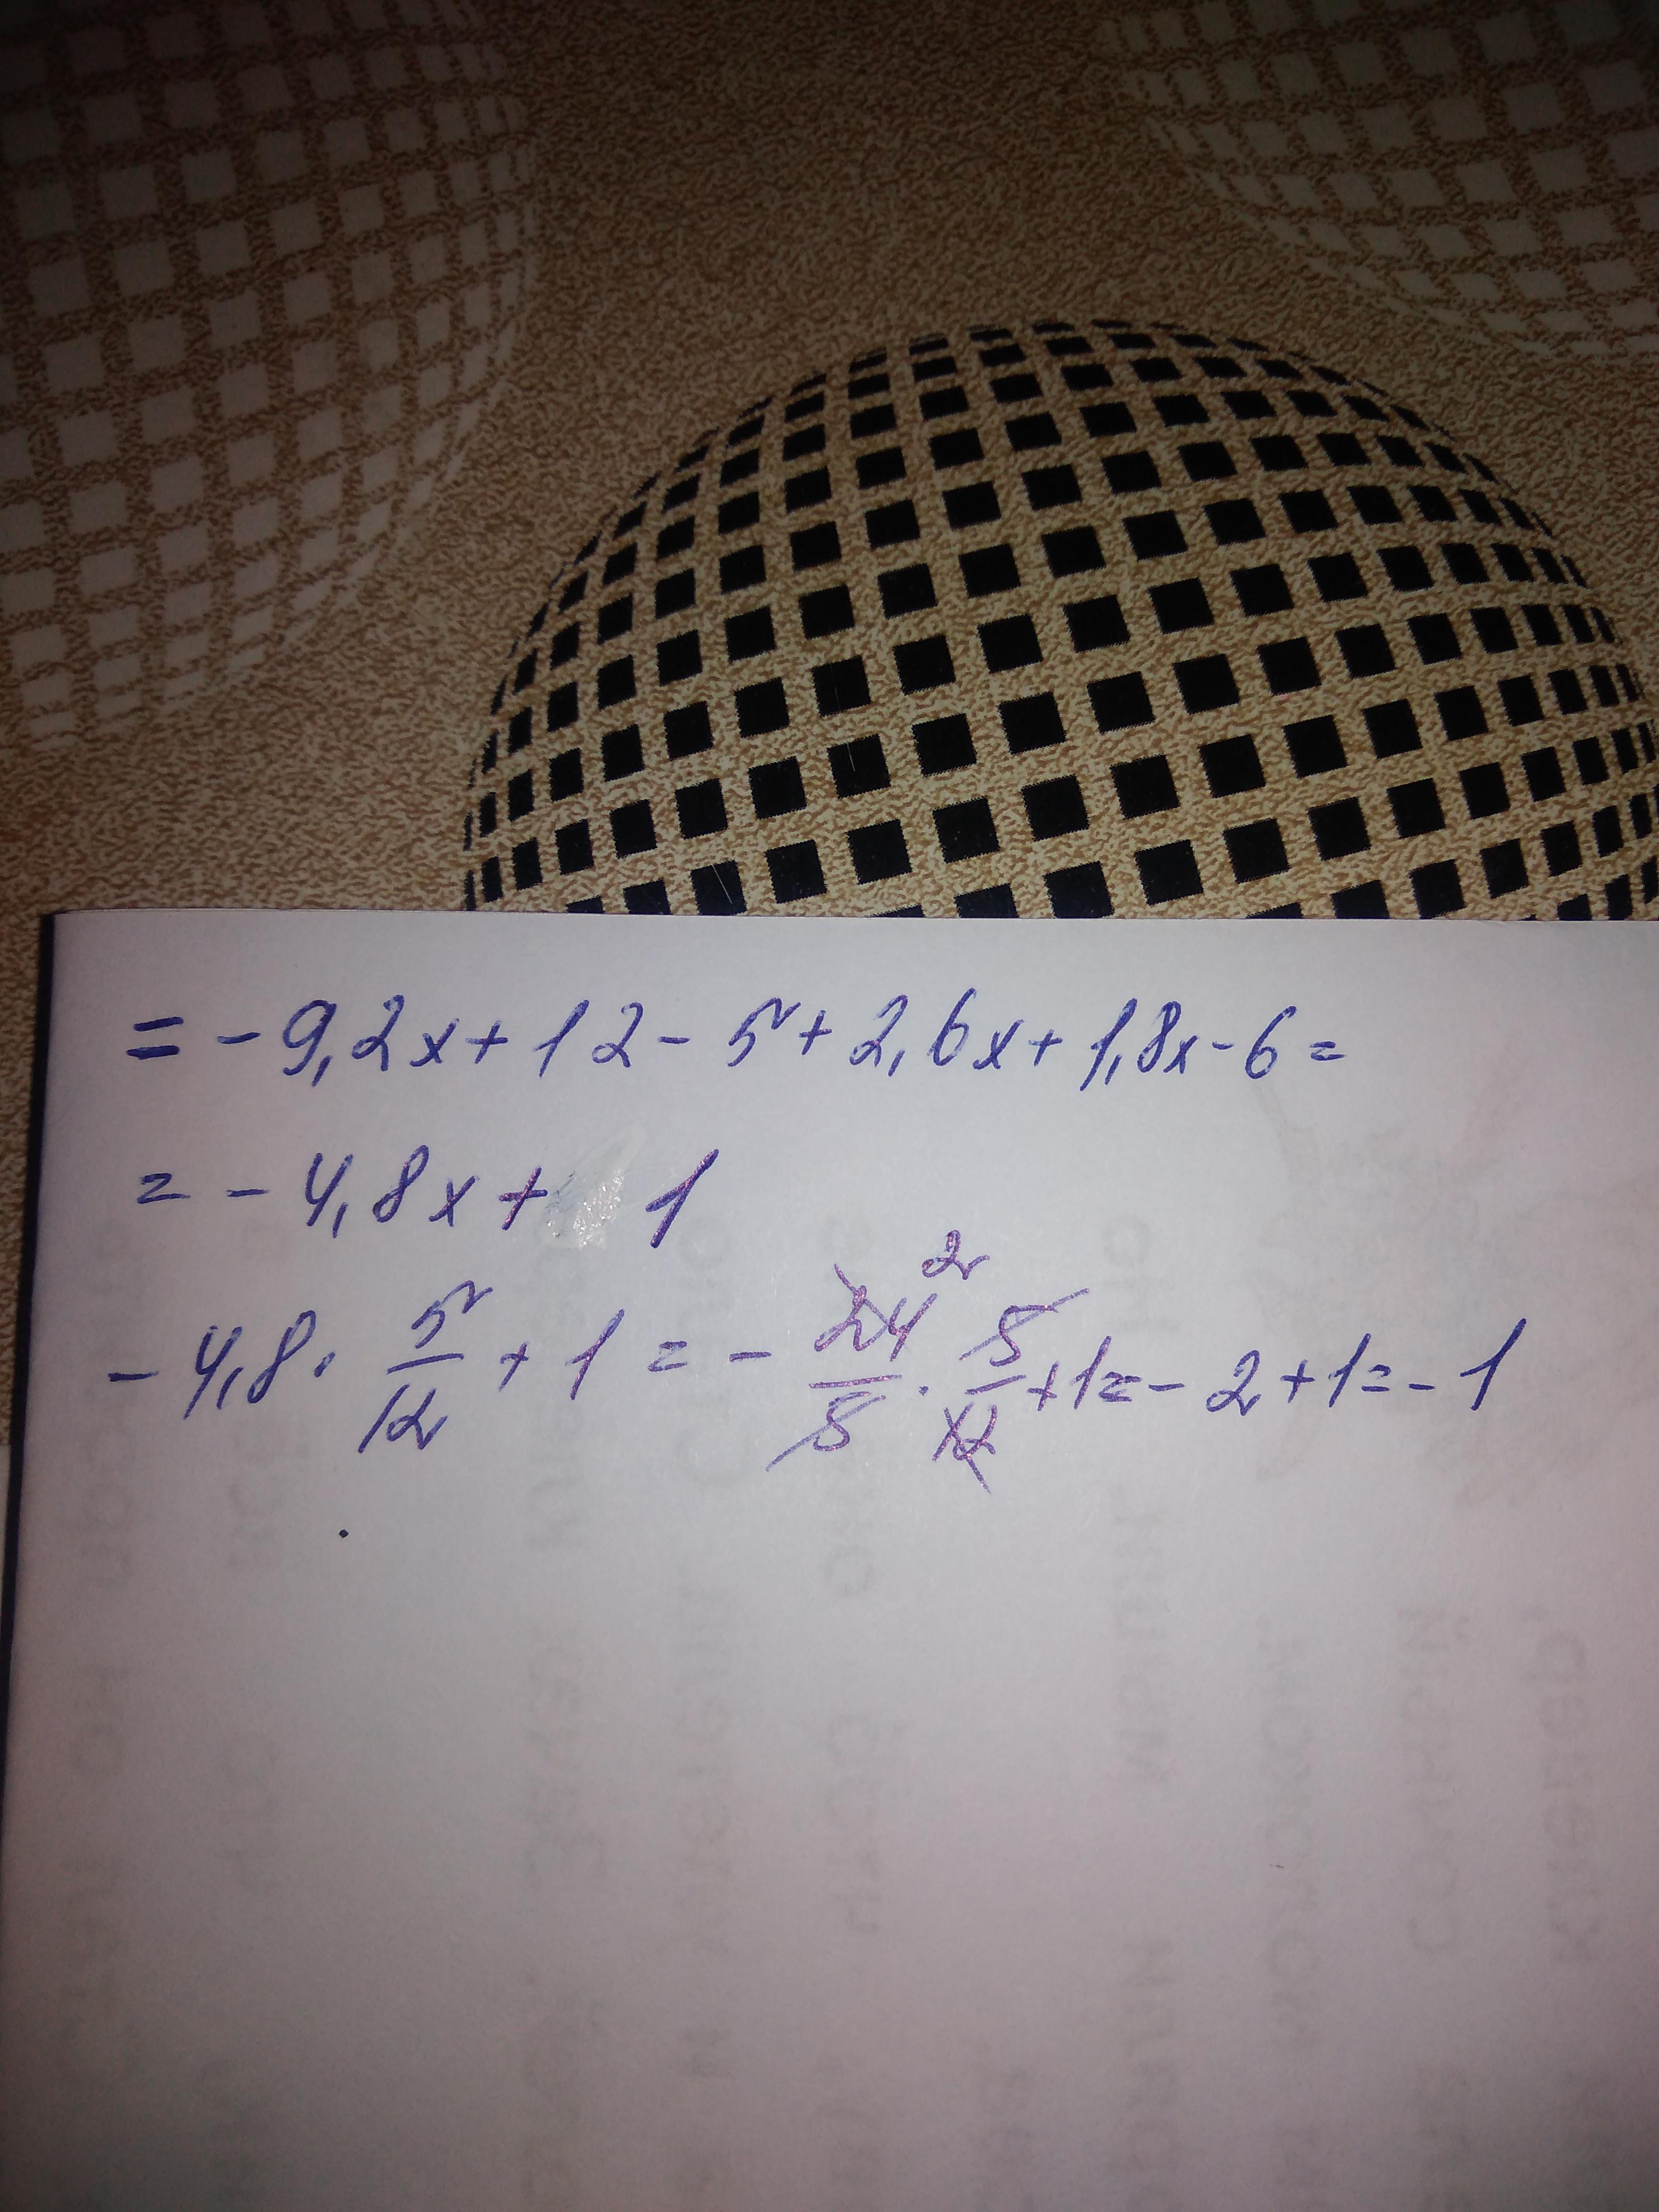 = - 9,2x + 12 - 5 + 2,6x + 1,8x - 6 =
= - 4,8x + 1
- 4,8 · 5/12 + 1 = - 24/5 · 5/12 + 1 = - 2 + 1 = - 1
2